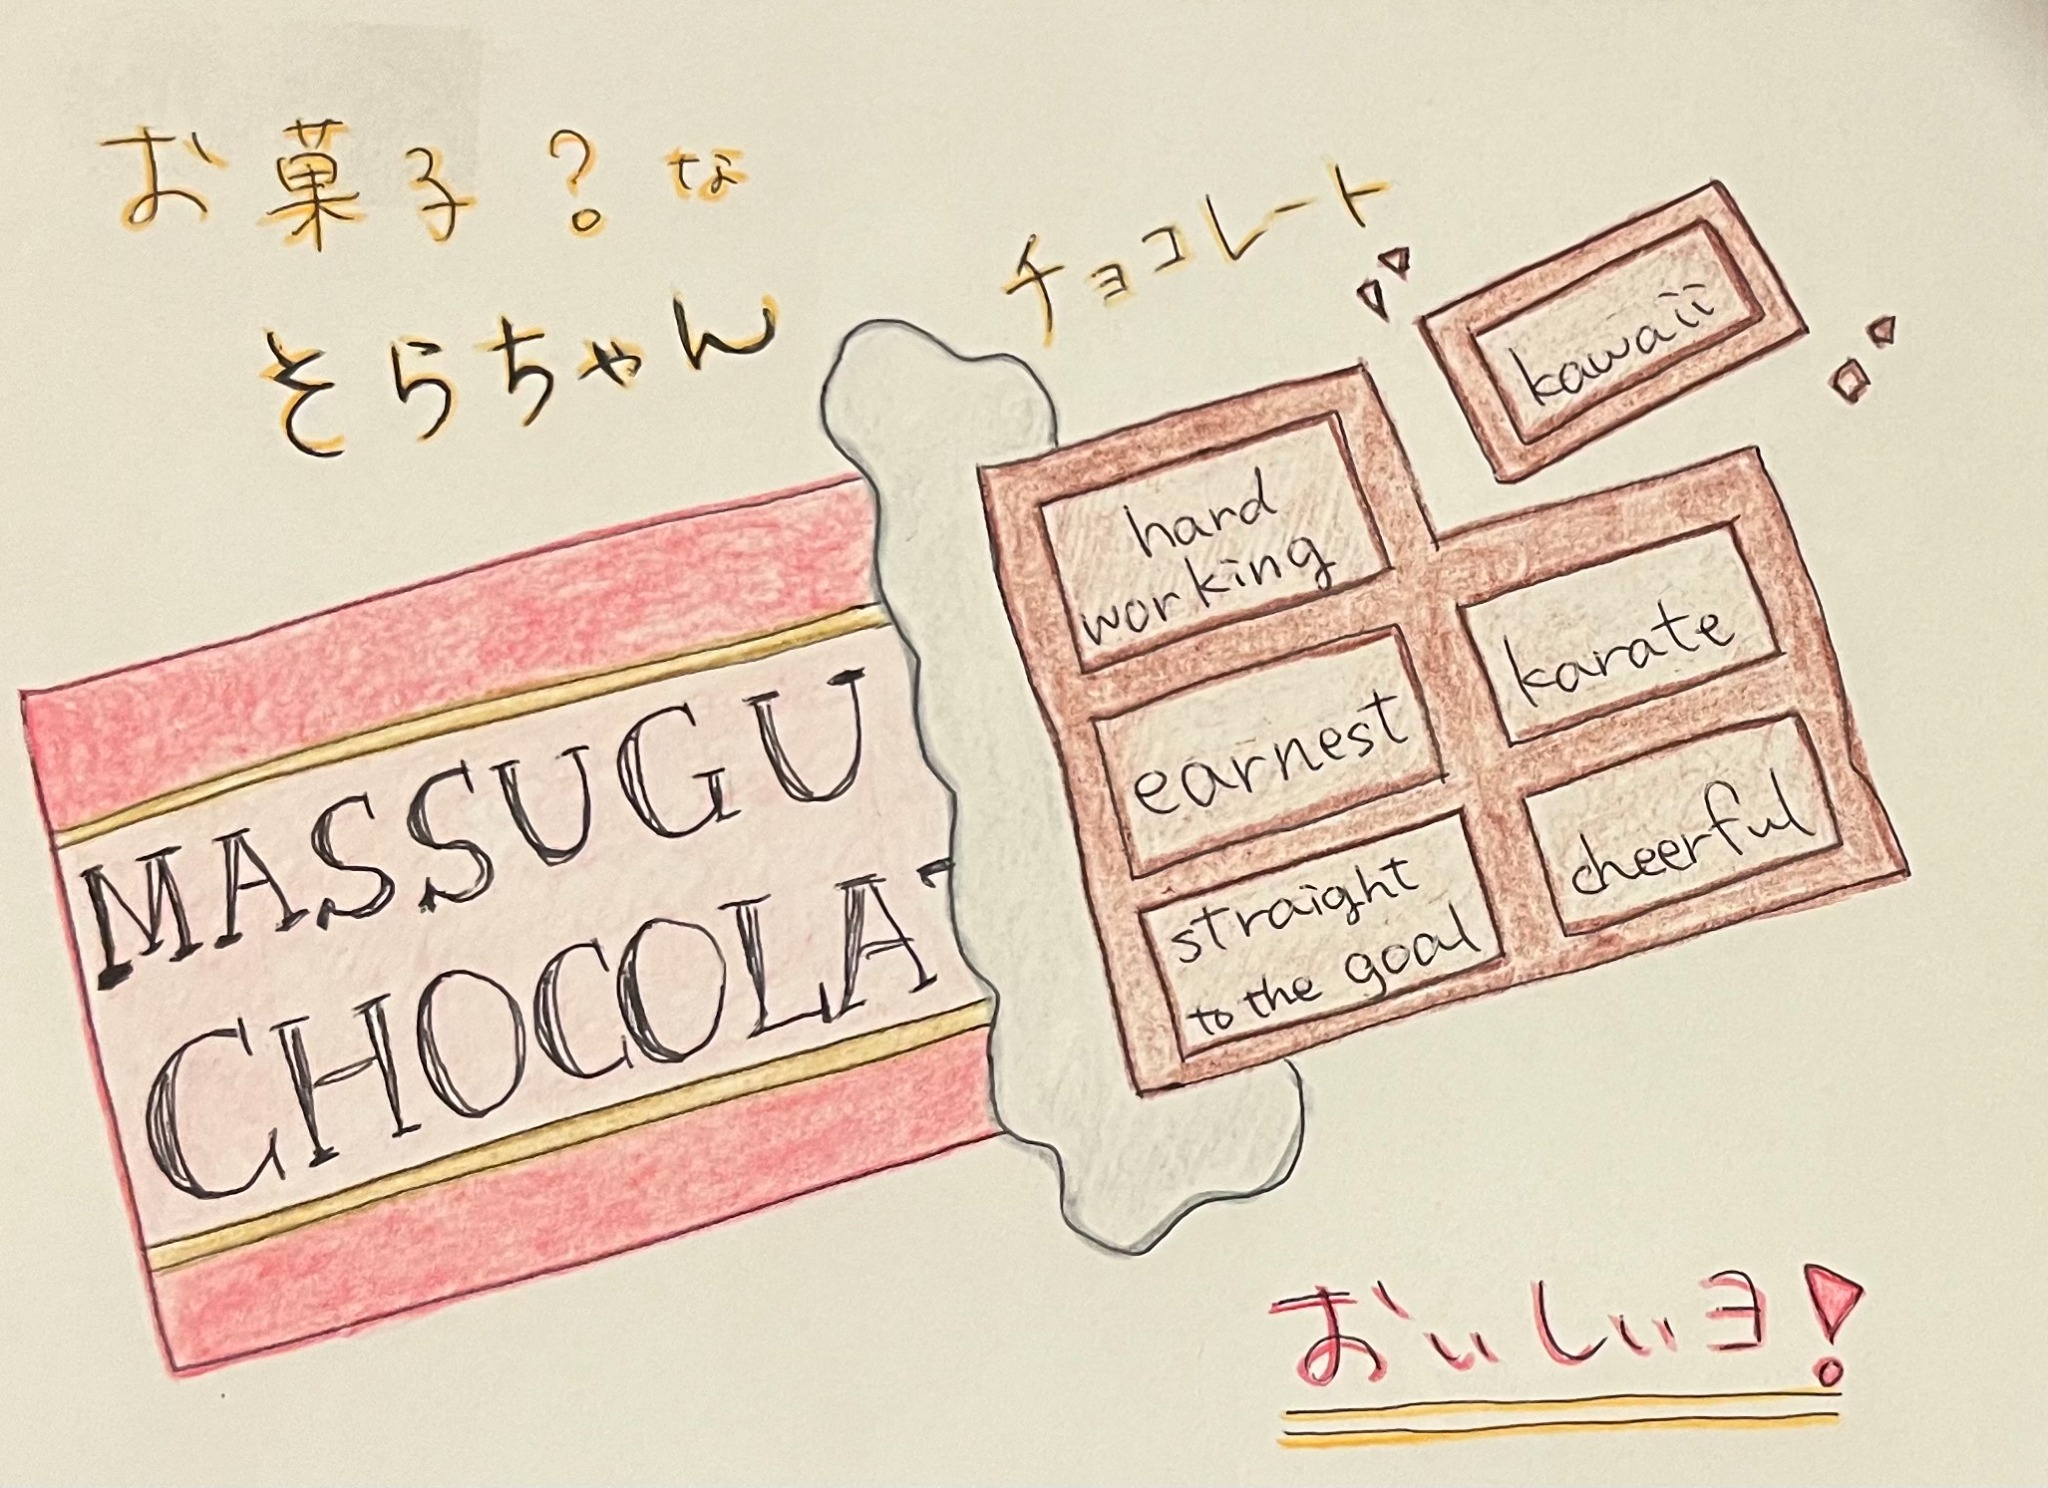 お菓子?な
そらちゃん
チョコレート
kawaii
hard
working
karate
earnest
cheerful
straight
to the goal
MASSUGU
CHOCOLAT
おいしいヨ!